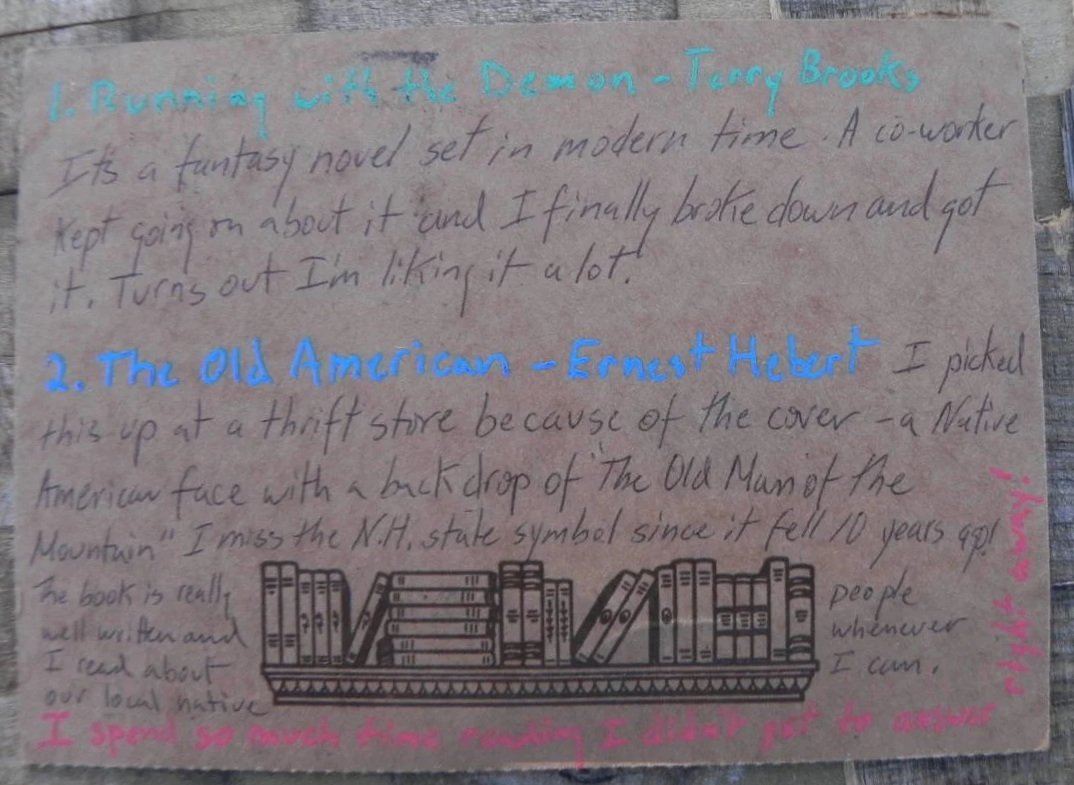 1. Running with the Demon - Terry Brooks
It's a fantasy novel set in modern time. A co-worker
kept going on about it and I finally broke down and got
it. Turns out I'm liking it a lot!
2. The Old American - Ernest Hebert I picked
this up at a thrift store because of the cover - a Native
American face with a backdrop of "The Old Man of the
Mountain" I miss the N.H. state symbol since it fell 10 years ago!
The book is really
well written and
I read about
our local native
people
whenever
I can.
I spend so much time reading I didn't get to answer
right away!